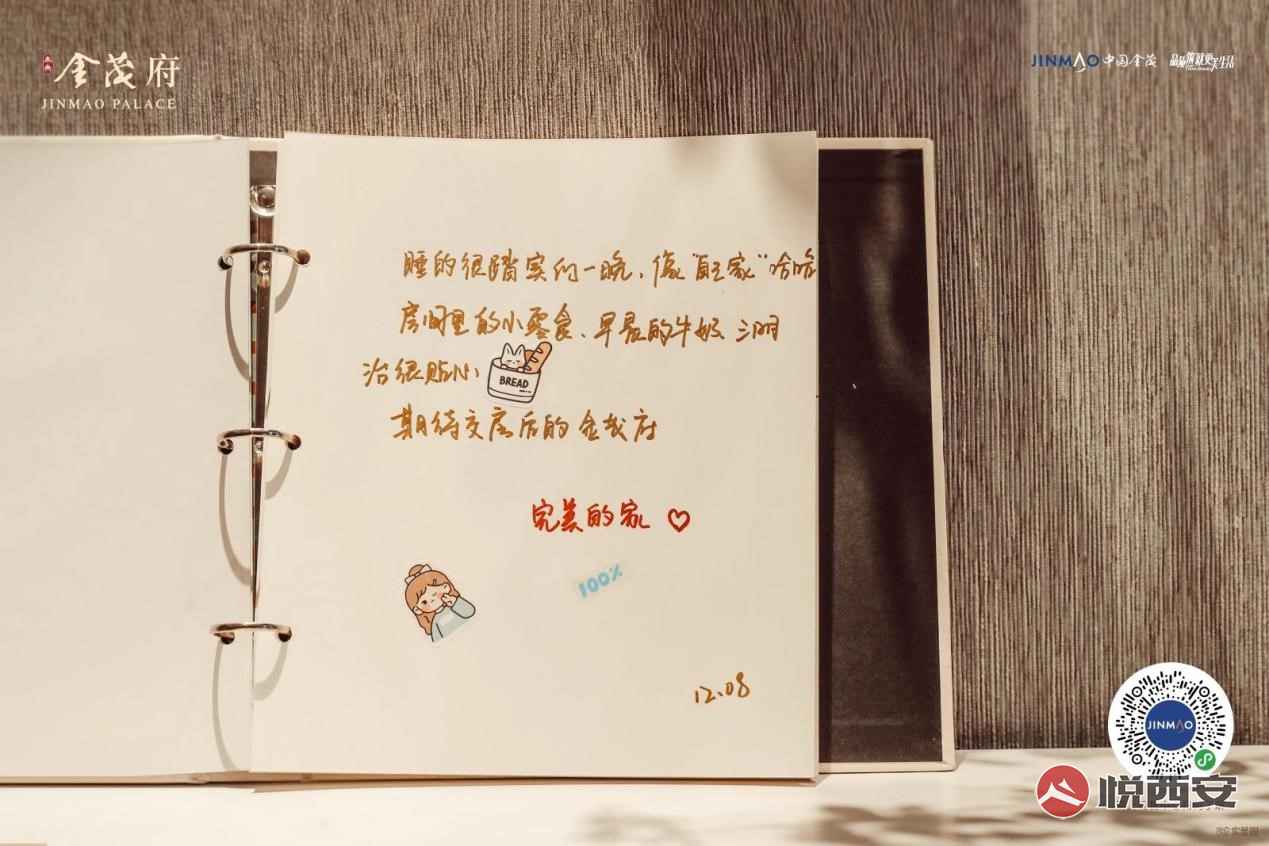 金茂府
JINMAO PALACE
JINMAO 中国金茂
睡的很踏实的一晚，像"自己家"哈哈
房间里的小零食、早晨的牛奶三明
治很贴心
BREAD
期待交房后的金茂府
完美的家
100%
12.08
JINMAO
悦西安